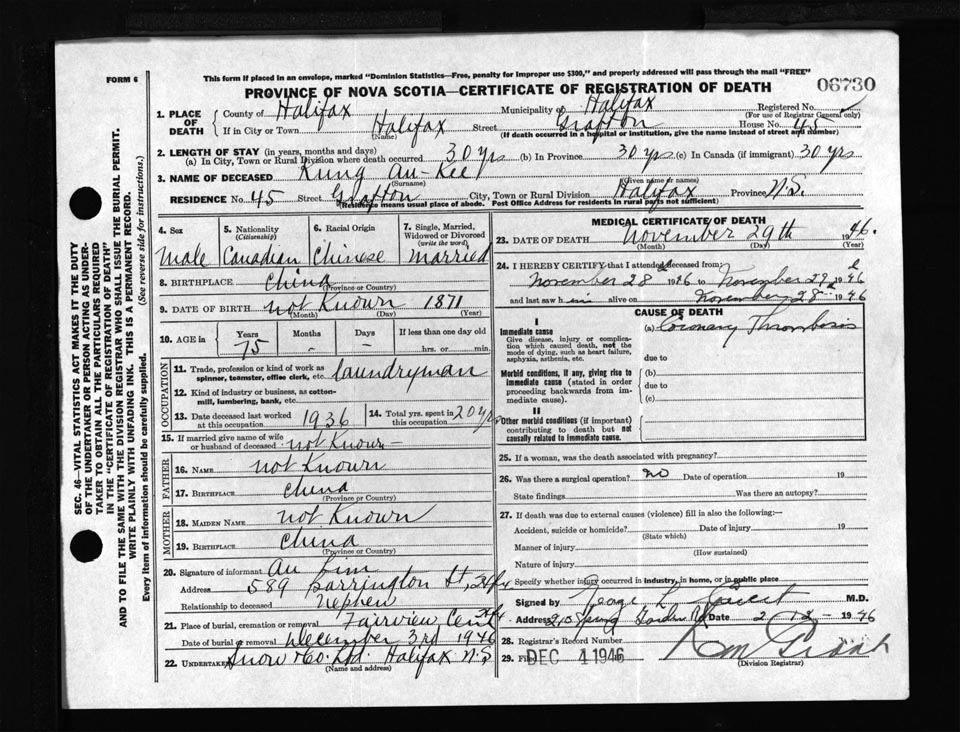 FORM 6
This form if placed in an envelope, marked "Dominion Statistics—Free, penalty for improper use $300," and properly addressed will pass through the mail "FREE"
06730
PROVINCE OF NOVA SCOTIA—CERTIFICATE OF REGISTRATION OF DEATH
1. PLACE OF DEATH
County of Halifax Municipality of Halifax Registered No.
(For use of Registrar General only)
If in City or Town Halifax Street Grafton House No. 45
(Name) (If death occurred in a hospital or institution, give the name instead of street and number)
2. LENGTH OF STAY (in years, months and days)
(a) In City, Town or Rural Division where death occurred 30 yrs (b) In Province 30 yrs (c) In Canada (if immigrant) 30 yrs
3. NAME OF DECEASED Kung Au-Kee
(Surname) (Given name or names)
RESIDENCE No. 45 Street Grafton City, Town or Rural Division Halifax Province N.S.
(Residence means usual place of abode. Post Office Address for residents in rural parts not sufficient)
4. Sex
Male
5. Nationality
(Citizenship)
Canadian
6. Racial Origin
Chinese
7. Single, Married, Widowed or Divorced
(write the word)
Married
8. BIRTHPLACE China
(Province or Country)
9. DATE OF BIRTH not Known 1871
(Month) (Day) (Year)
10. AGE in Years Months Days If less than one day old
75 – – hrs. or min.
OCCUPATION
11. Trade, profession or kind of work as spinner, teamster, office clerk, etc. laundryman
12. Kind of industry or business, as cotton-mill, lumbering, bank, etc.
13. Date deceased last worked at this occupation 1936
14. Total yrs. spent in this occupation 20 yrs
15. If married give name of wife or husband of deceased not Known
FATHER
16. NAME not Known
17. BIRTHPLACE China
(Province or Country)
MOTHER
18. MAIDEN NAME not Known
19. BIRTHPLACE China
(Province or Country)
20. Signature of informant Au Lim
Address 589 Barrington St, Hfx
Relationship to deceased Nephew
21. Place of burial, cremation or removal Fairview Cem Hfx
Date of burial or removal December 3rd 1946
22. UNDERTAKER Snow & Co. Ltd. Halifax N.S
(Name and address)
MEDICAL CERTIFICATE OF DEATH
23. DATE OF DEATH November 29th 1946.
(Month) (Day) (Year)
24. I HEREBY CERTIFY that I attended deceased from:
November 28 1946 to November 29 1946
and last saw him alive on November 28 1946
CAUSE OF DEATH
I
Immediate cause
Give disease, injury or complication which caused death, not the mode of dying, such as heart failure, asphyxia, asthenia, etc.
(a) Coronary Thrombosis
due to
Morbid conditions, if any, giving rise to immediate cause (stated in order proceeding backwards from immediate cause).
(b)
due to
(c)
II
Other morbid conditions (if important) contributing to death but not causally related to immediate cause.
25. If a woman, was the death associated with pregnancy?
26. Was there a surgical operation? no Date of operation 19
State findings Was there an autopsy?
27. If death was due to external causes (violence) fill in also the following:—
Accident, suicide or homicide? Date of injury 19
(State which)
Manner of injury
(How sustained)
Nature of injury
Specify whether injury occurred in industry, in home, or in public place
Signed by George L. M.D.
Address 210 Spring Garden Rd Date 2 - 12 - 1946
28. Registrar's Record Number
29. Filed DEC 4 1946
(Division Registrar)
SEC. 46—VITAL STATISTICS ACT MAKES IT THE DUTY
OF THE UNDERTAKER OR PERSON ACTING AS UNDERTAKER TO OBTAIN ALL THE PARTICULARS REQUIRED
IN THE "CERTIFICATE OF REGISTRATION OF DEATH"
AND TO FILE THE SAME WITH THE DIVISION REGISTRAR WHO SHALL ISSUE THE BURIAL PERMIT.
WRITE PLAINLY WITH UNFADING INK. THIS IS A PERMANENT RECORD.
Every item of information should be carefully supplied. (See reverse side for instructions.)